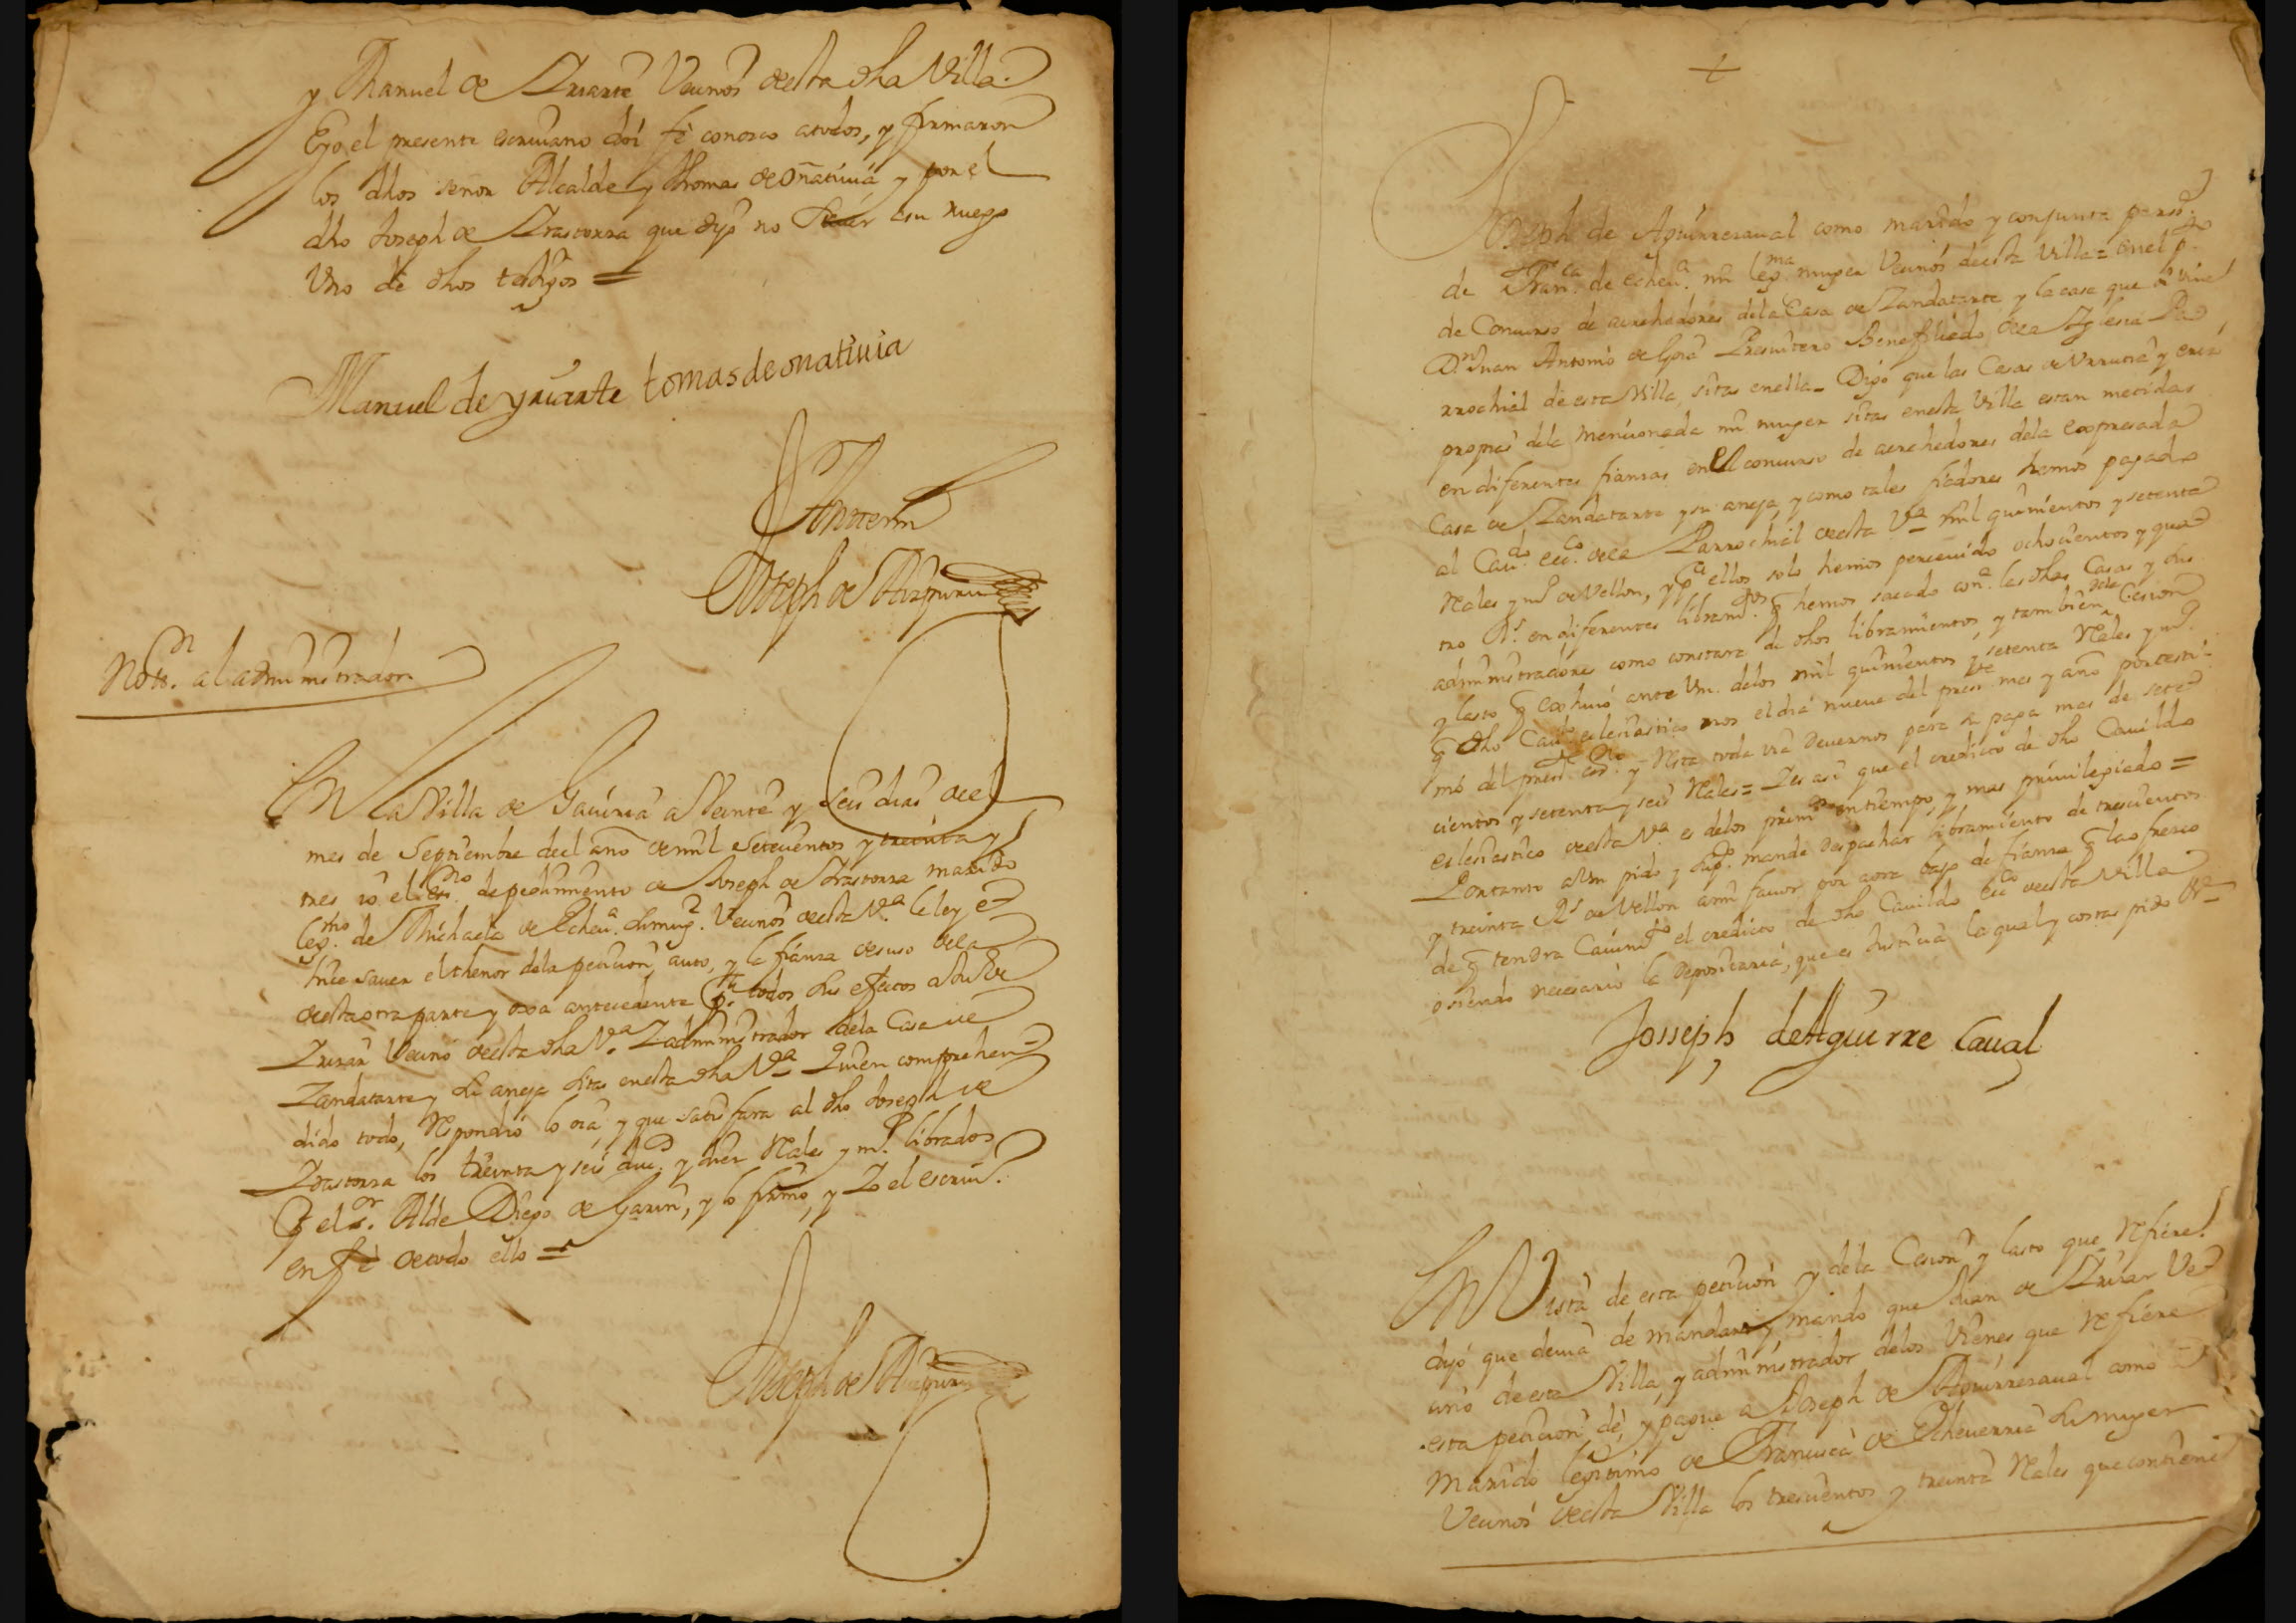 y Manuel de Yriarte Vecinos desta dha Villa.
E yo el presente escriuano doi fè conosco atodos, y firmaron
los dhos señor Alcalde y Thomas de oñatiuia y por el
dho Joseph de Yrastorza que dijo no sauer asu ruego
Uno de dhos testigos =
Manuel de yriarte tomas de onatiuia
Ante mi
Joseph de Aizpuru
Noton. al administrador
En la Villa de Gauiria a Veinte y seis dias del
mes de Septiembre deel año de mil Setecientos y treinta y
tres yo el essno. de pedimiento de Joseph de Yrastorza marido
legmo. de Michaela de Echeua. su muger. Vecinos desta Va. le ley e
hice sauer el thenor dela peticion, auto, y la fianza de suso dela
desta otra parte y oxa antecedente pa. todos sus efectos a Juan de
Yrizar Vecino desta dha Va. Y administrador dela Casa de
Zandatarte y su aneja sitas enesta dha Va. Quien comprehen-
dido todo, Respondio lo oia, y que satisfara al dho Joseph de
Yrastorza los treinta y seis duc.s y diez Reales y mo. librados
Por el sor. Alde Diego de Garin, y lo firmo, y Yo el escriuo.
en fè de todo ello =
Joseph de Aizpuru
+
Joseph de Aguirresaual como marido y conjunta perso.
de Franca. de echeua. mi legma. muger Vecinos deesta Villa = en el pto.
de Concurso de acrehedores dela Casa de Zandatarte y la casa que viue
Dn. Juan Antonio de Goia Presuitero Beneficiado dela Yglesia Pa
rrochial de esta Villa, sitas enella = Digo que las Casas de Urrutia y
propias dela mencionada mi muger sitas enesta Villa estan metidas
en diferentes fianzas en el concurso de acrehedores dela expresada
Casa de Zandatarte y su aneja, y como tales fiadores hemos pagado
al Caudo. ecco. dela Parrochial desta Va. mil quinientos y setenta
Reales y mo. de Vellon, y pa. ellos solo hemos perceuido ochocientos y qua
tro Rs. en diferentes libramtos. q hemos sacado con. las dhas Casas y sus
administradores como constara de dhos libramientos, y tambien dela Cesion
y lasto q exhiuo ante Vm. delos mil quinientos y setenta Reales y mo.
q dho Cauo eclesiastico nos el dia nueue del preste mes y año por testi-
mo del preste esno. y Resta toda via Deuernos para la paga mas de sete
cientos y setenta y seis Reales = Y es asi que el credito de dho Cauildo
eclesiastico desta Va. es delos primos entiempo, y mas priuilegiado =
Portanto aVm pido y supco. mande Despachar libramiento de trescientos
y treinta Rs de Vellon ami fauor por aora bajo de fianza q la ofresco
de q tendra Cauimto el credito de dho Cauildo ecco desta Villa
osiendo necesario la Depositaria, que es Justicia la qual y costas pido Va
Josseph de Aguirre Caual
En Vista de esta peticion y dela Cesion y lasto que Refiere.
dijo que deuia de mandar y mando que Juan de Yrizar Ve
cino de esta Villa y administrador delos Vienes que Refiere
esta peticion dè, y pague a Joseph de Aguirresaual como
Marido legitimo de Francisca de Echeuerria su muger
Vecinos desta Villa los trescientos y treinta Reales que contiene